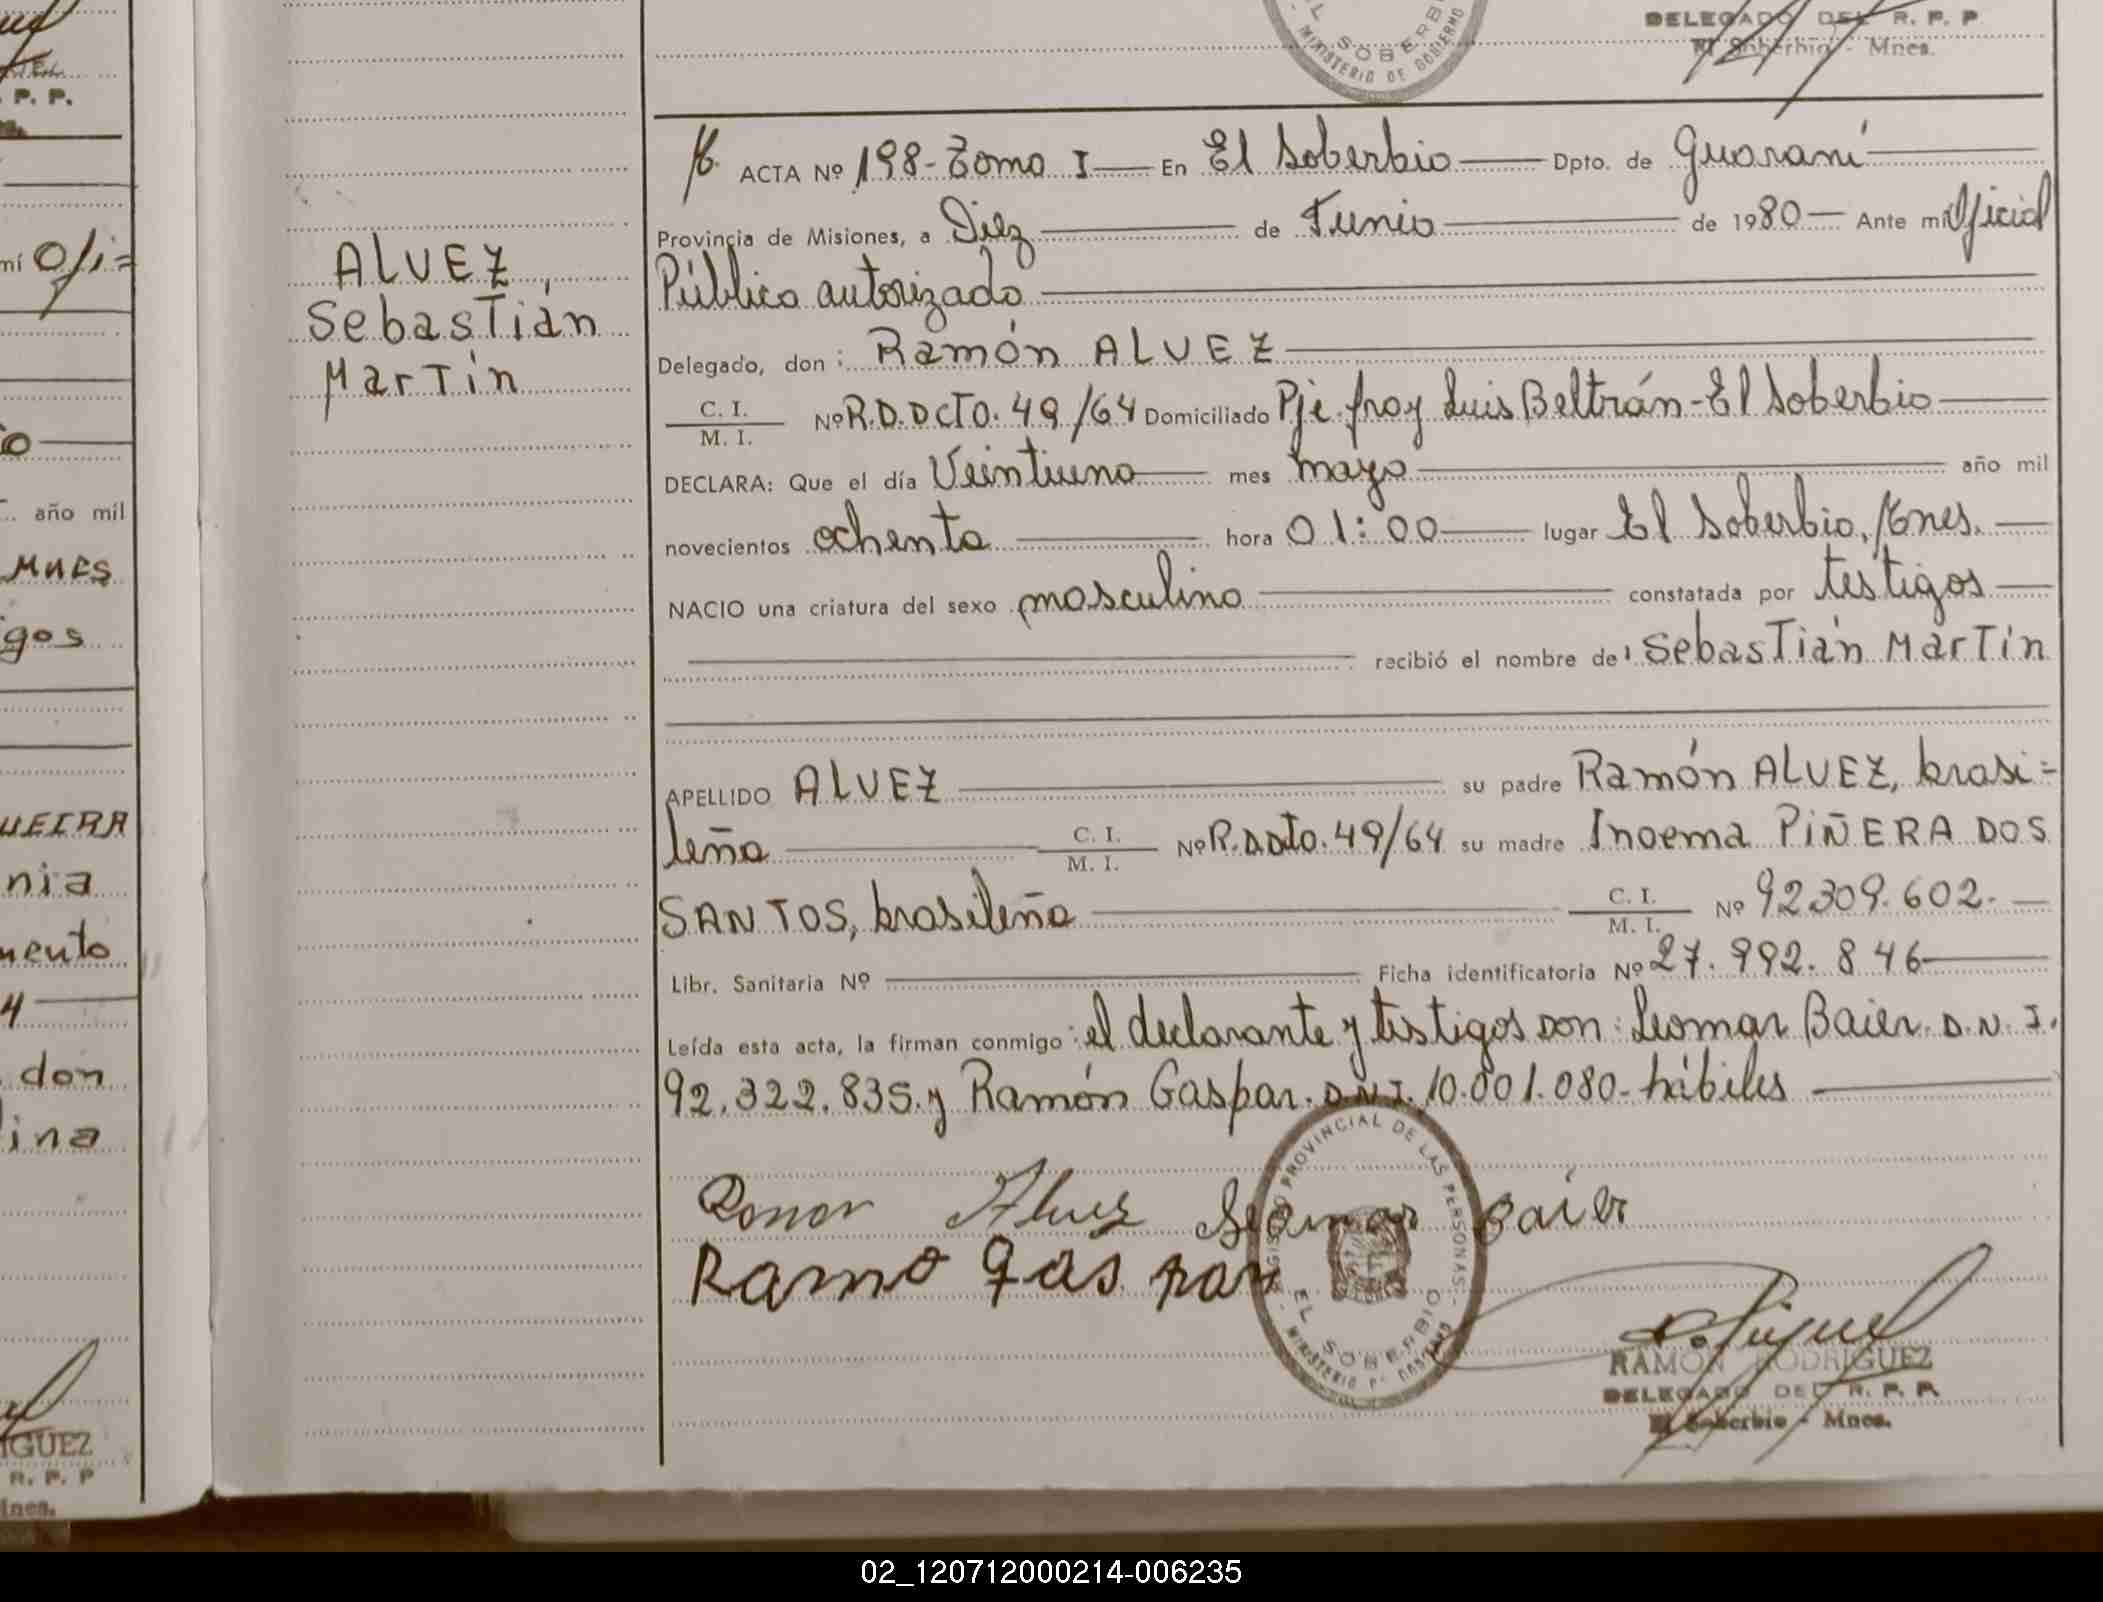 DELEGADO DEL R. P. P.
El Soberbio - Mnes.
EL SOBERBIO
MINISTERIO DE GOBIERNO
P. P.
mí Ofi=
año mil
Mnes
igos
UEIRA
nia
mento
don
lina
IGUEZ
R. P. P
Mnes.
ALVEZ,
Sebastián
Martín
ACTA Nº 198-Tomo I — En El Soberbio — Dpto. de Guaraní
Provincia de Misiones, a Diez de Junio de 1980 — Ante mí Oficial
Público autorizado
Delegado, don: Ramón ALVEZ
C. I. / M. I. Nº R.D.DCTO. 49/64 Domiciliado Pje. fray Luis Beltrán - El Soberbio
DECLARA: Que el día Veintiuno mes mayo año mil
novecientos ochenta hora 01:00 lugar El Soberbio, Mnes.
NACIO una criatura del sexo masculino constatada por testigos
recibió el nombre de: Sebastián Martín
APELLIDO ALVEZ su padre Ramón ALVEZ, brasi=
leña C. I. / M. I. Nº R.D.Dto. 49/64 su madre Inoema PIÑERA DOS
SANTOS, brasileña C. I. / M. I. Nº 92.309.602.
Libr. Sanitaria Nº Ficha identificatoria Nº 27.992.846
Leída esta acta, la firman conmigo: el declarante y testigos Don: Leomar Baier D.N.I.
92.322.835. y Ramón Gaspar. D.N.I. 10.001.080- hábiles
Ramon Alvez Leomar Baier
Ramo Gaspar
REGISTRO PROVINCIAL DE LAS PERSONAS
EL SOBERBIO
RAMÓN RODRIGUEZ
DELEGADO DEL R. P. P.
El Soberbio - Mnes.
02_120712000214-006235